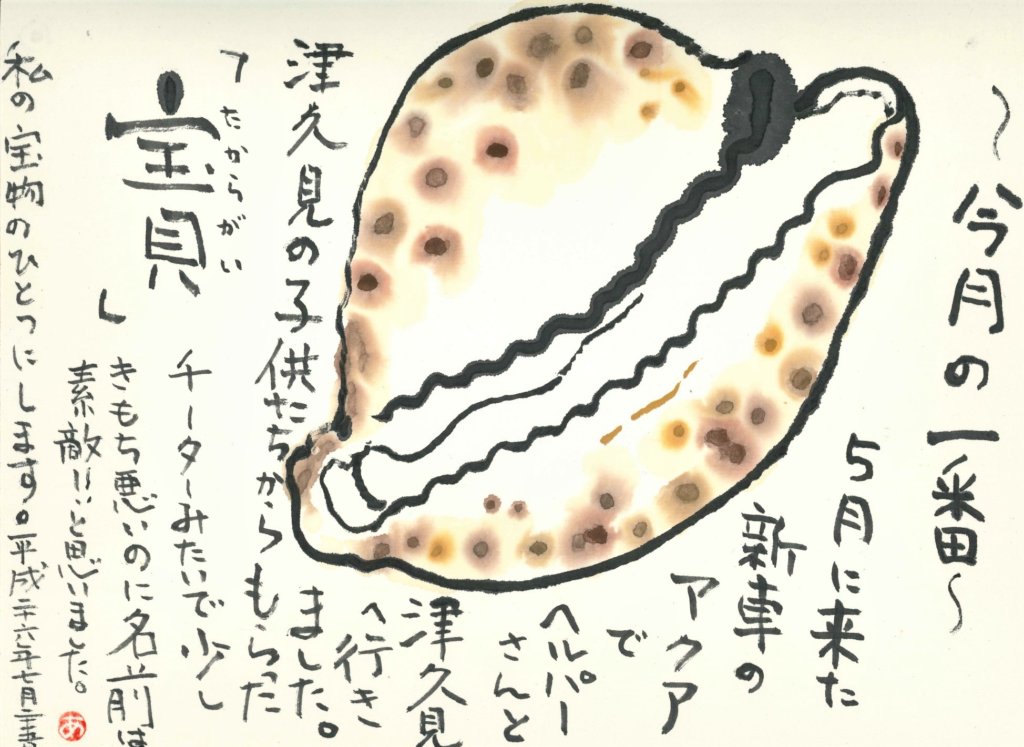 ～今月の一番～
5月に来た
新車の
アクア
で
ヘルパー
さんと
津久見
へ行き
ました。
津久見の子供たちからもらった
「宝貝」
たからがい
チーターみたいで少し
きもち悪いのに名前は
素敵!!と思いました。
私の宝物のひとつにします。平成二十六年七月書
あ